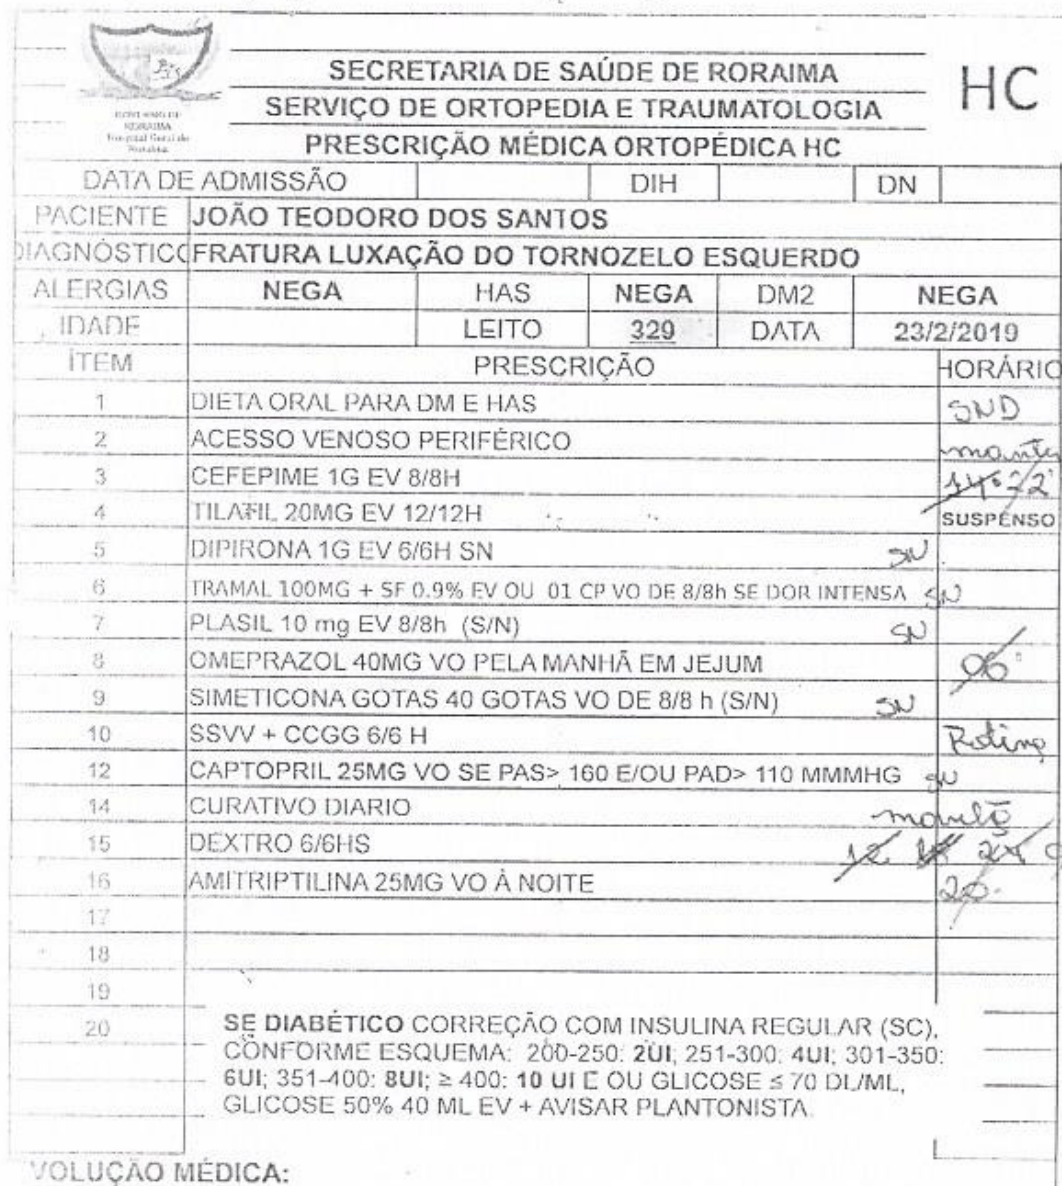 SECRETARIA DE SAÚDE DE RORAIMA
HC
SERVIÇO DE ORTOPEDIA E TRAUMATOLOGIA
PRESCRIÇÃO MÉDICA ORTOPÉDICA HC
GOVERNO DE
RORAIMA
Hospital Geral de
Roraima
DATA DE ADMISSÃO DIH DN
PACIENTE JOÃO TEODORO DOS SANTOS
DIAGNÓSTICO FRATURA LUXAÇÃO DO TORNOZELO ESQUERDO
ALERGIAS NEGA HAS NEGA DM2 NEGA
IDADE LEITO 329 DATA 23/2/2019
ÍTEM PRESCRIÇÃO HORÁRIO
1 DIETA ORAL PARA DM E HAS SND
2 ACESSO VENOSO PERIFÉRICO
3 CEFEPIME 1G EV 8/8H 14 22
4 TILATIL 20MG EV 12/12H SUSPENSO
5 DIPIRONA 1G EV 6/6H SN SN
6 TRAMAL 100MG + SF 0.9% EV OU 01 CP VO DE 8/8h SE DOR INTENSA SN
7 PLASIL 10 mg EV 8/8h (S/N) SN
8 OMEPRAZOL 40MG VO PELA MANHÃ EM JEJUM 06
9 SIMETICONA GOTAS 40 GOTAS VO DE 8/8 h (S/N) SN
10 SSVV + CCGG 6/6 H Rotina
12 CAPTOPRIL 25MG VO SE PAS> 160 E/OU PAD> 110 MMMHG SN
14 CURATIVO DIARIO manhã
15 DEXTRO 6/6HS 12 18 24
16 AMITRIPTILINA 25MG VO À NOITE 20
17
18
19
20 SE DIABÉTICO CORREÇÃO COM INSULINA REGULAR (SC),
CONFORME ESQUEMA: 200-250: 2UI; 251-300: 4UI; 301-350:
6UI; 351-400: 8UI; ≥ 400: 10 UI E OU GLICOSE ≤ 70 DL/ML,
GLICOSE 50% 40 ML EV + AVISAR PLANTONISTA.
VOLUÇÃO MÉDICA: